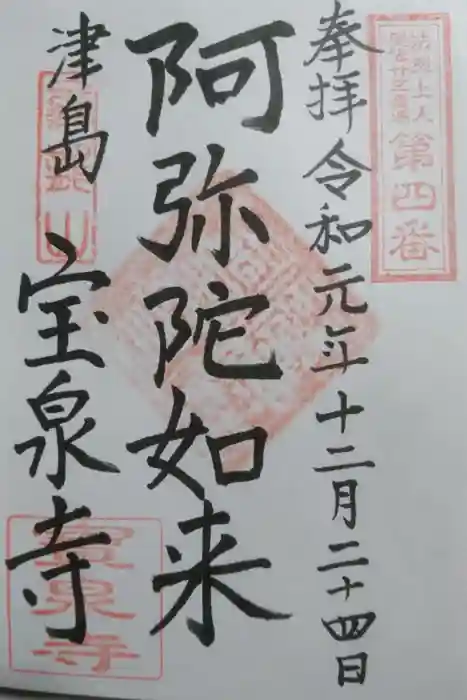 第四番
奉拝 令和元年十二月二十四日
阿弥陀如来
津島 宝泉寺
寳泉寺